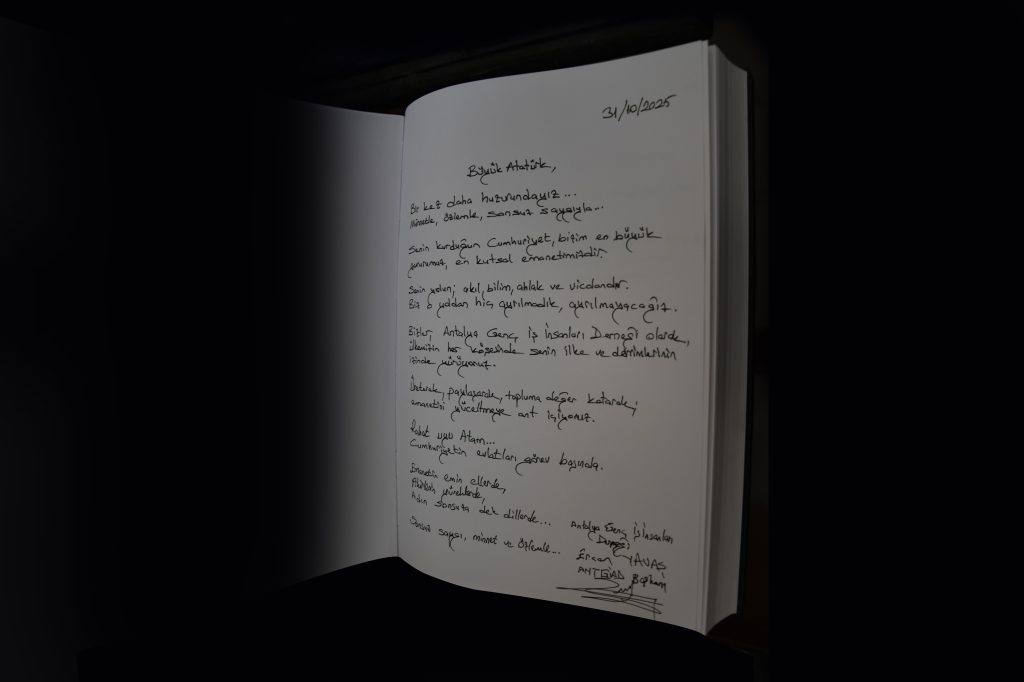 31/10/2025
Büyük Atatürk,
Bir kez daha huzurundayız...
Minnetle, özlemle, sonsuz saygıyla...
Senin kurduğun Cumhuriyet, bizim en büyük
gururumuz, en kutsal emanetimizdir.
Senin yolun; akıl, bilim, ahlak ve vicdandır.
Biz o yoldan hiç ayrılmadık, ayrılmayacağız.
Bizler, Antalya Genç İş İnsanları Derneği olarak,
ülkemizin her köşesinde senin ilke ve devrimlerinin
izinde yürüyoruz.
Üreterek, paylaşarak, topluma değer katarak;
emanetini yüceltmeye ant içiyoruz.
Rahat uyu Atam...
Cumhuriyetin evlatları görev başında.
Emanetin emin ellerde,
yüreklerde,
Adın sonsuza dek dillerde...
Sonsuz saygı, minnet ve özlemle...
Antalya Genç İş İnsanları
Derneği
Ercan YAVAŞ
ANTGİAD Başkanı